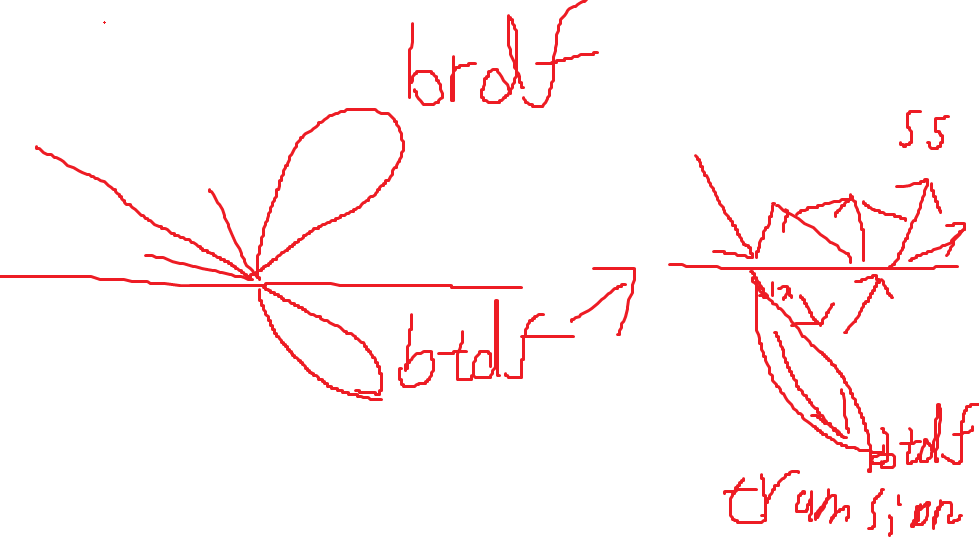 brdf
ss
btdf
btdf
transion